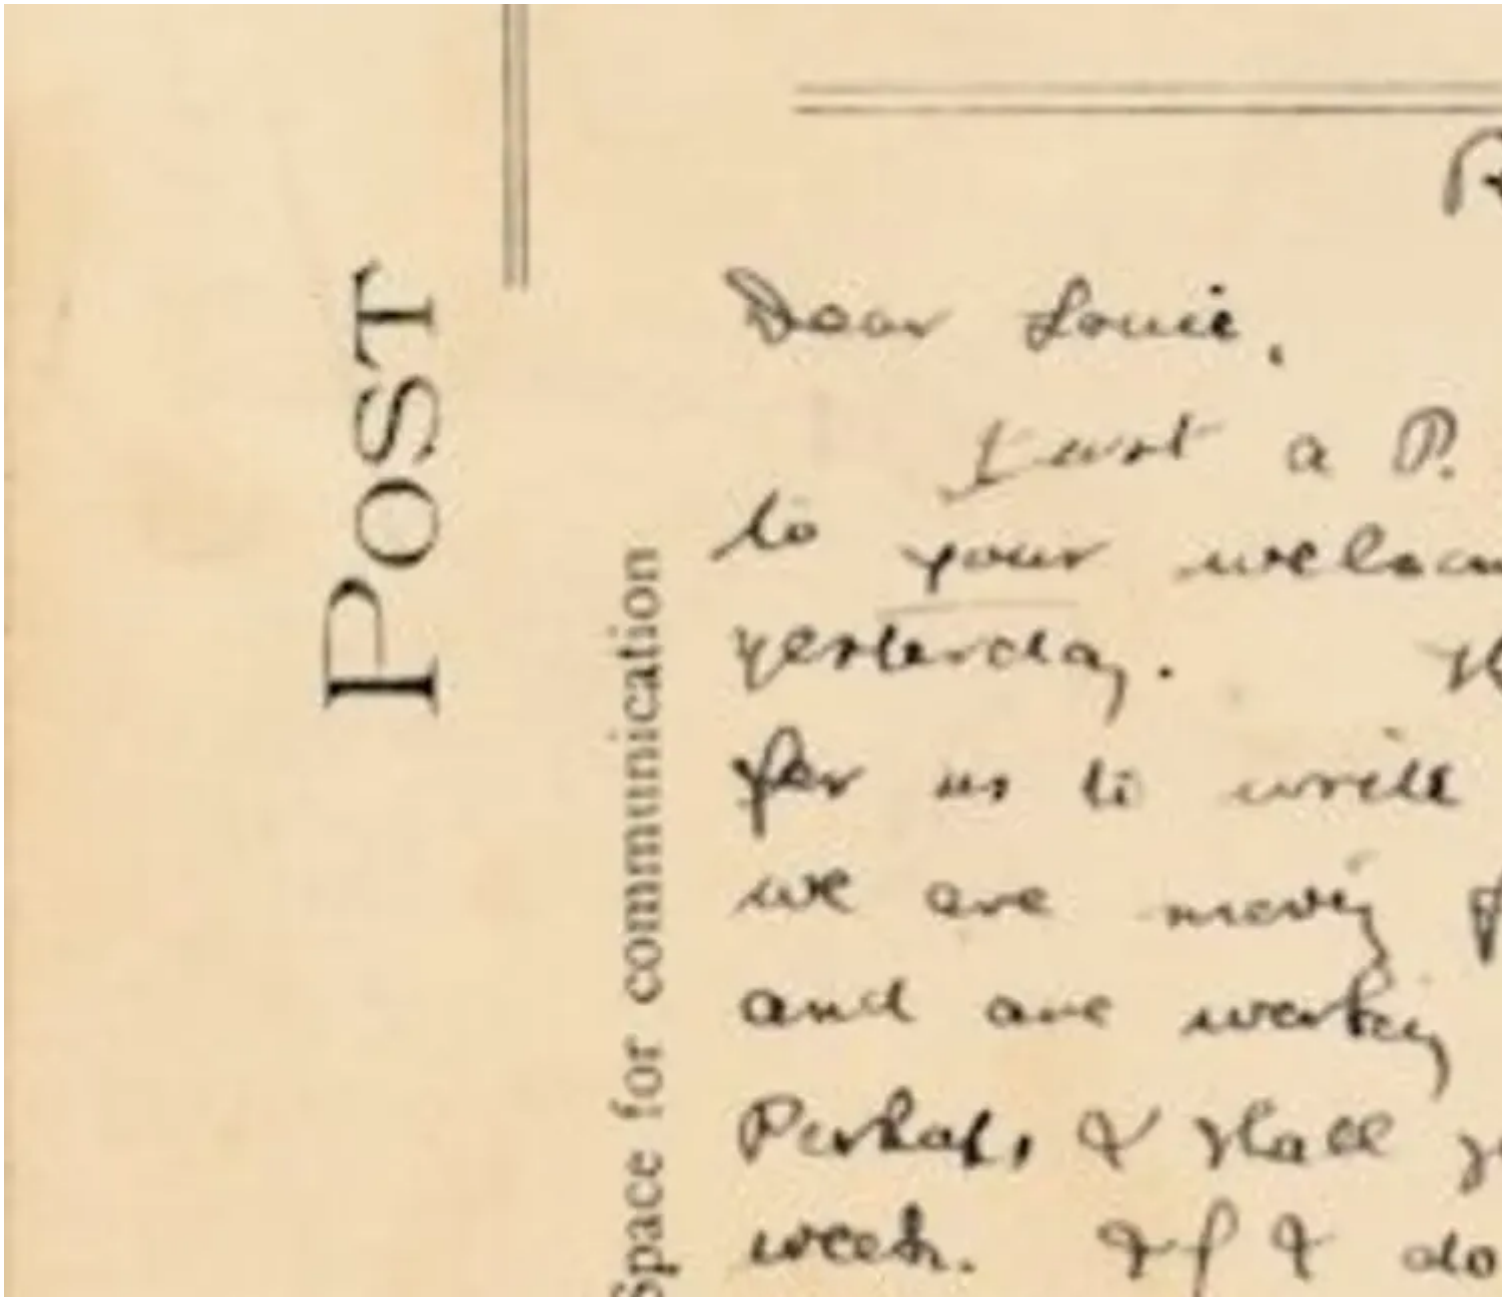 POST
Space for communication
Dear Louie,
Just a P.
to your welcom
yesterday.
for us to write
we are moving
and are working
Perhaps I shall
week. If I do